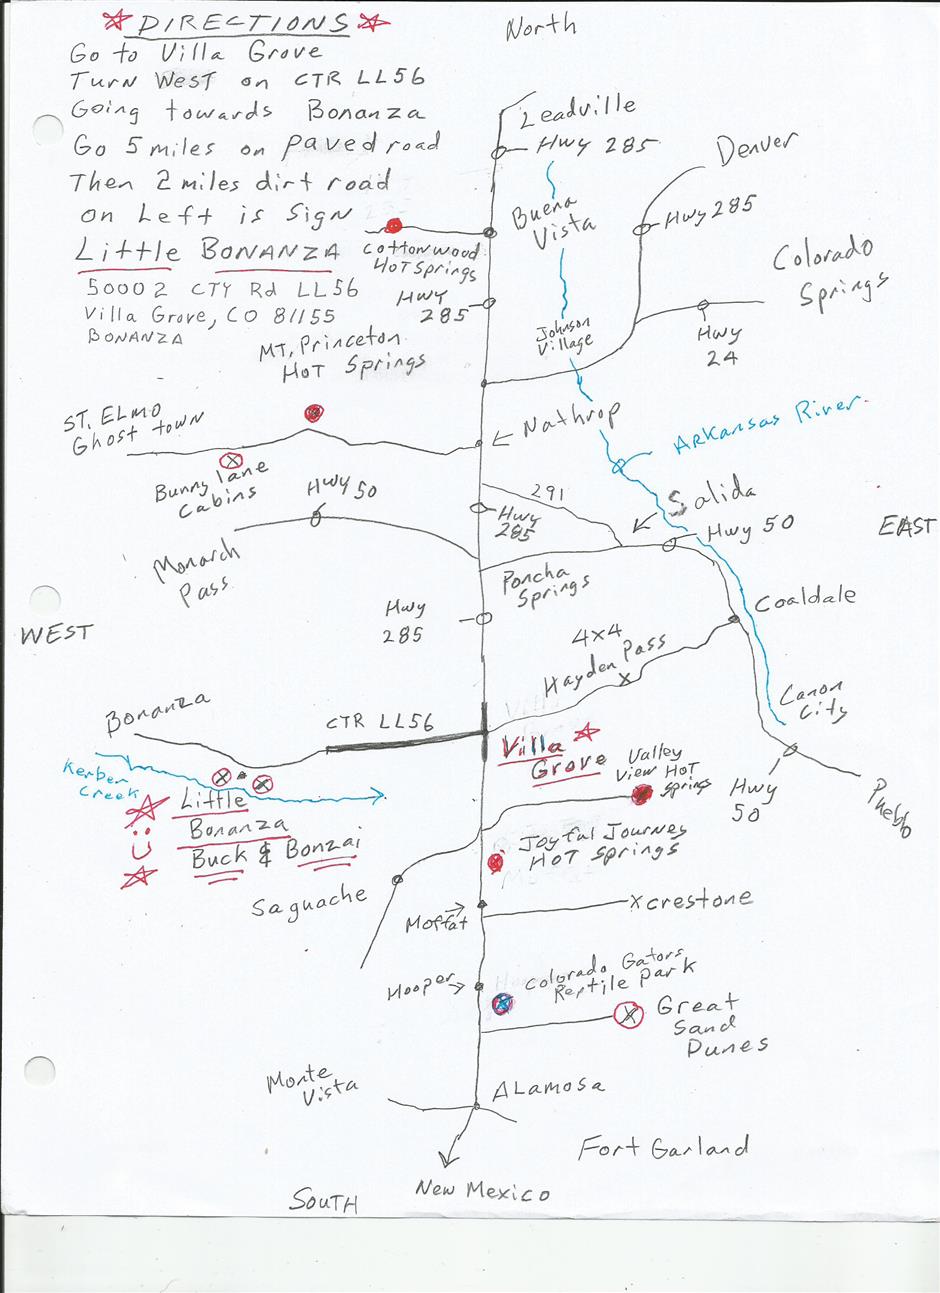 DIRECTIONS
Go to Villa Grove
Turn West on CTR LL56
Going towards Bonanza
Go 5 miles on paved road
Then 2 miles dirt road
on Left is Sign
Little BONANZA
50002 CTY Rd LL56
Villa Grove, CO 81155
BONANZA
North
Leadville
Hwy 285
Denver
Buena
Vista
Hwy 285
Cottonwood
HOT Springs
Colorado
Springs
Hwy
285
Johnson
Village
Hwy
24
MT, Princeton
HOT Springs
ST. ELMO
Ghost town
Nathrop
Arkansas River
Bunny lane
Cabins
Hwy 50
291
Salida
Hwy
285
Hwy 50
EAST
Monarch
Pass
Poncha
Springs
Hwy
285
Coaldale
WEST
4x4
Hayden Pass
x
Canon
City
Bonanza
CTR LL56
Villa
Grove
Valley
View HOT
Springs
Hwy
50
Pueblo
Kerber
Creek
Little
Bonanza
Buck & Bonzai
Joyful Journey
HOT Springs
Saguache
Moffat
xcrestone
Hooper
Colorado Gators
Reptile Park
Great
Sand
Dunes
Monte
Vista
ALamosa
Fort Garland
New Mexico
SOUTH